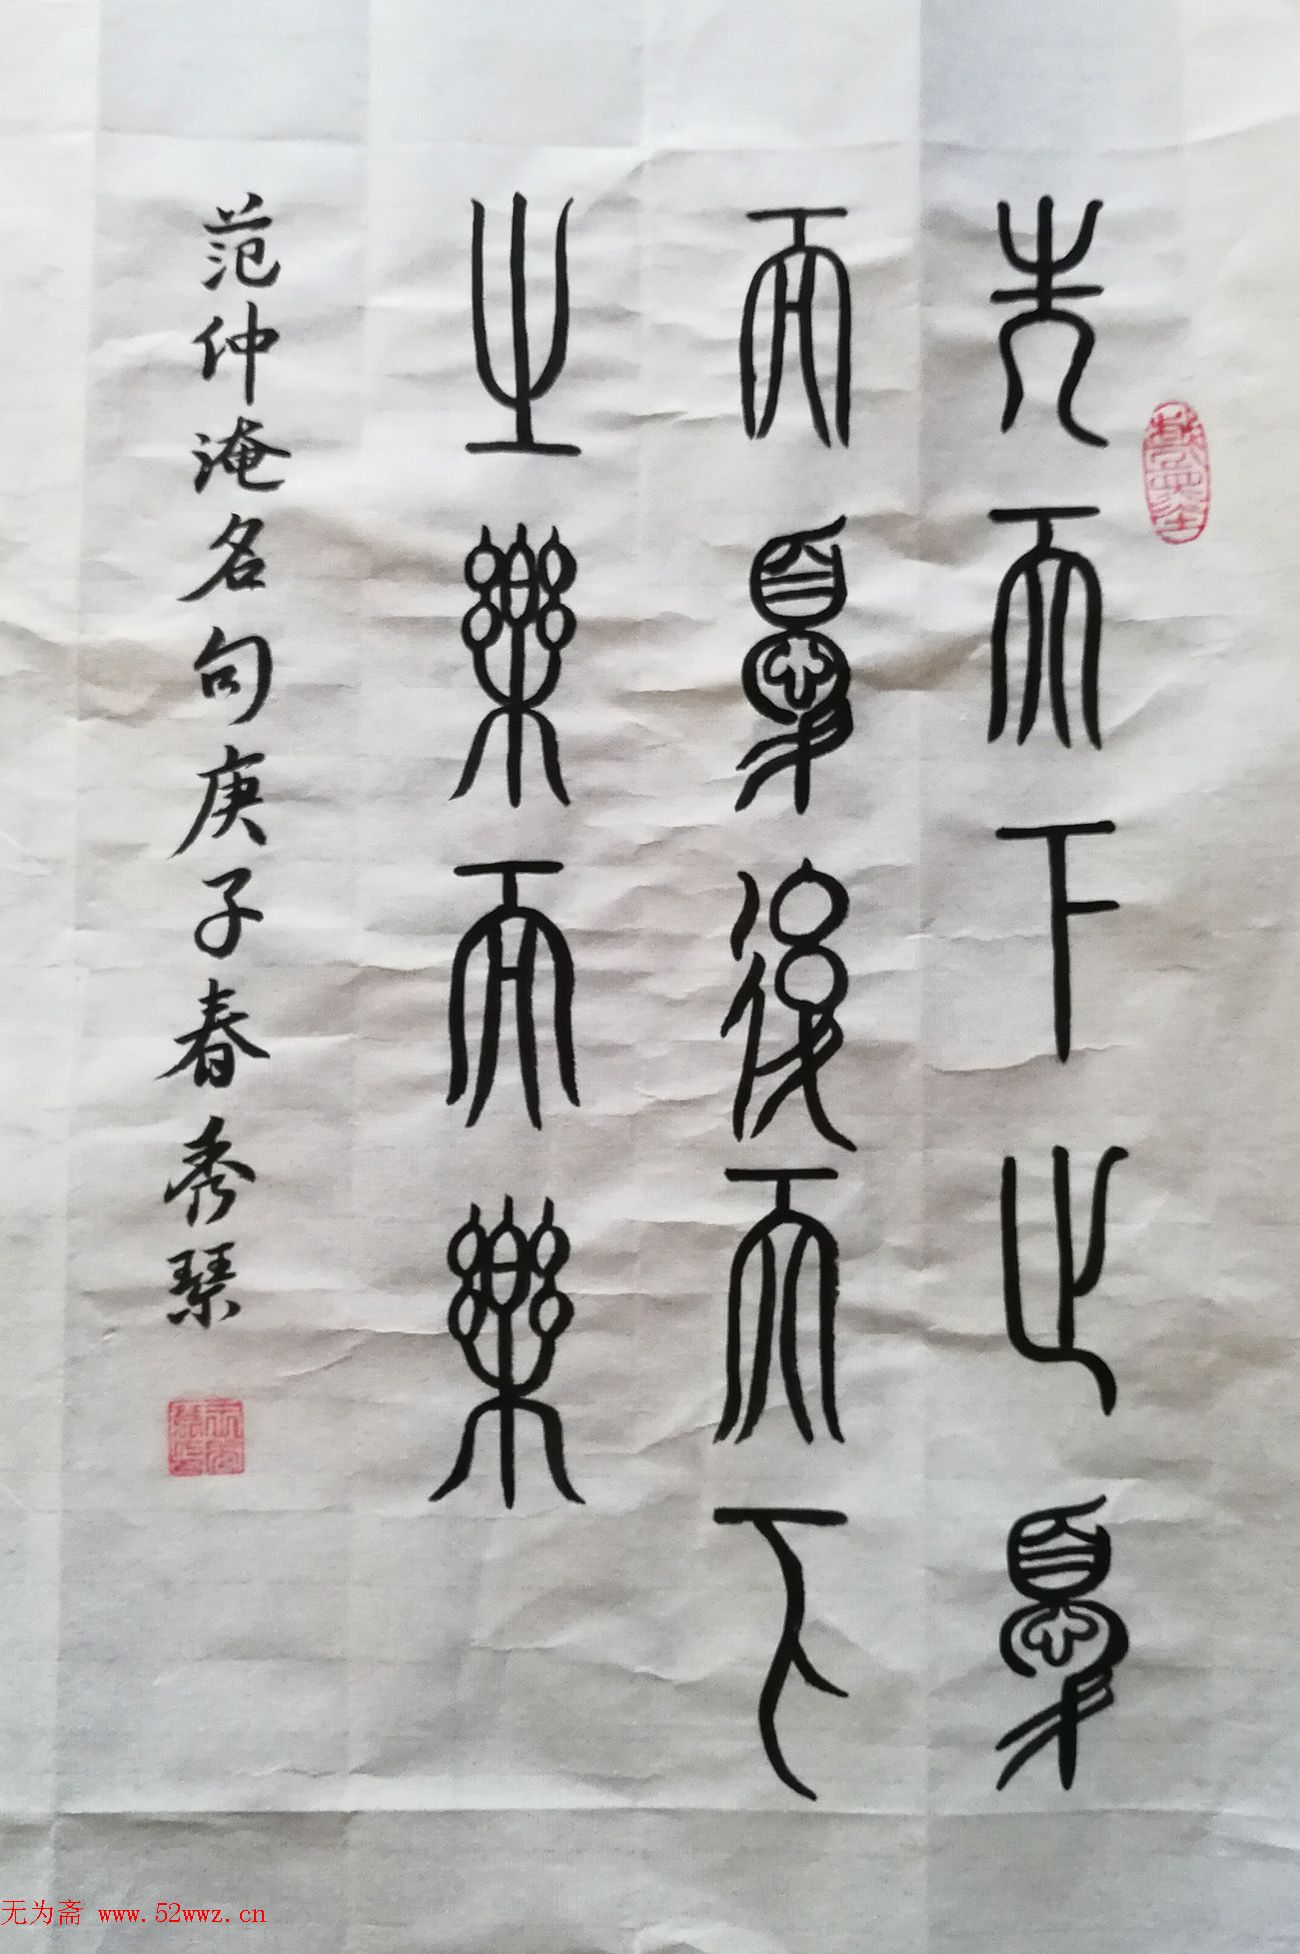 先天下之憂
而憂後天下
之樂而樂
范仲淹名句庚子春秀琴
无为斋 www.52wwz.cn